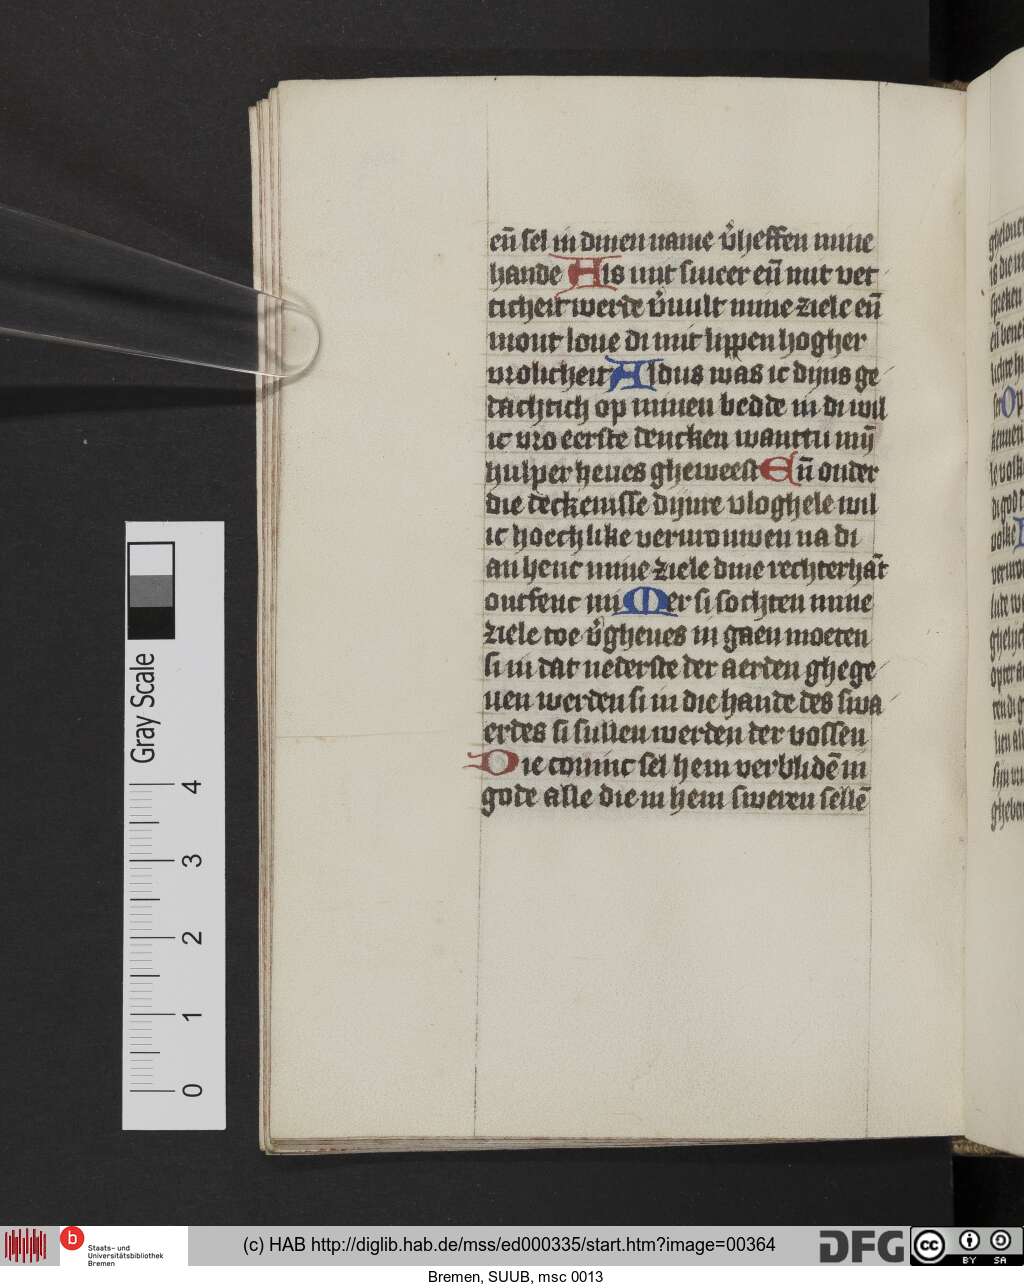 eñ sel in dinen name v̉heffen mine
hande Als mit smeer eñ mit vet
ticheit werde v̉uult mine ziele eñ
mont loue di mit lippen hogher
vrolicheit Aldus was ic dijns ge
dachtich op minen bedde in di wil
ic vro eerste dencken wanttu mij̄
hulper heues gheweest Eñ onder
die deckenisse dijnre vloghele wil
ic hoechlike vermonwen na di
an henc mine ziele dine rechterhāt
ontfenc mi Mer si sochten mine
ziele toe v̉gheues in gaen moeten
si in dat nederste der aerden ghege
uen werden si in die hande des swa
erdes si sullen werden der vossen
Die coninc sel hem verblidē in
gode alle die in hem sweren sellē
Gray Scale
4
3
2
1
0
b
Staats- und
Universitätsbibliothek
Bremen
(c) HAB http://diglib.hab.de/mss/ed000335/start.htm?image=00364
DFG
cc
BY SA
Bremen, SUUB, msc 0013